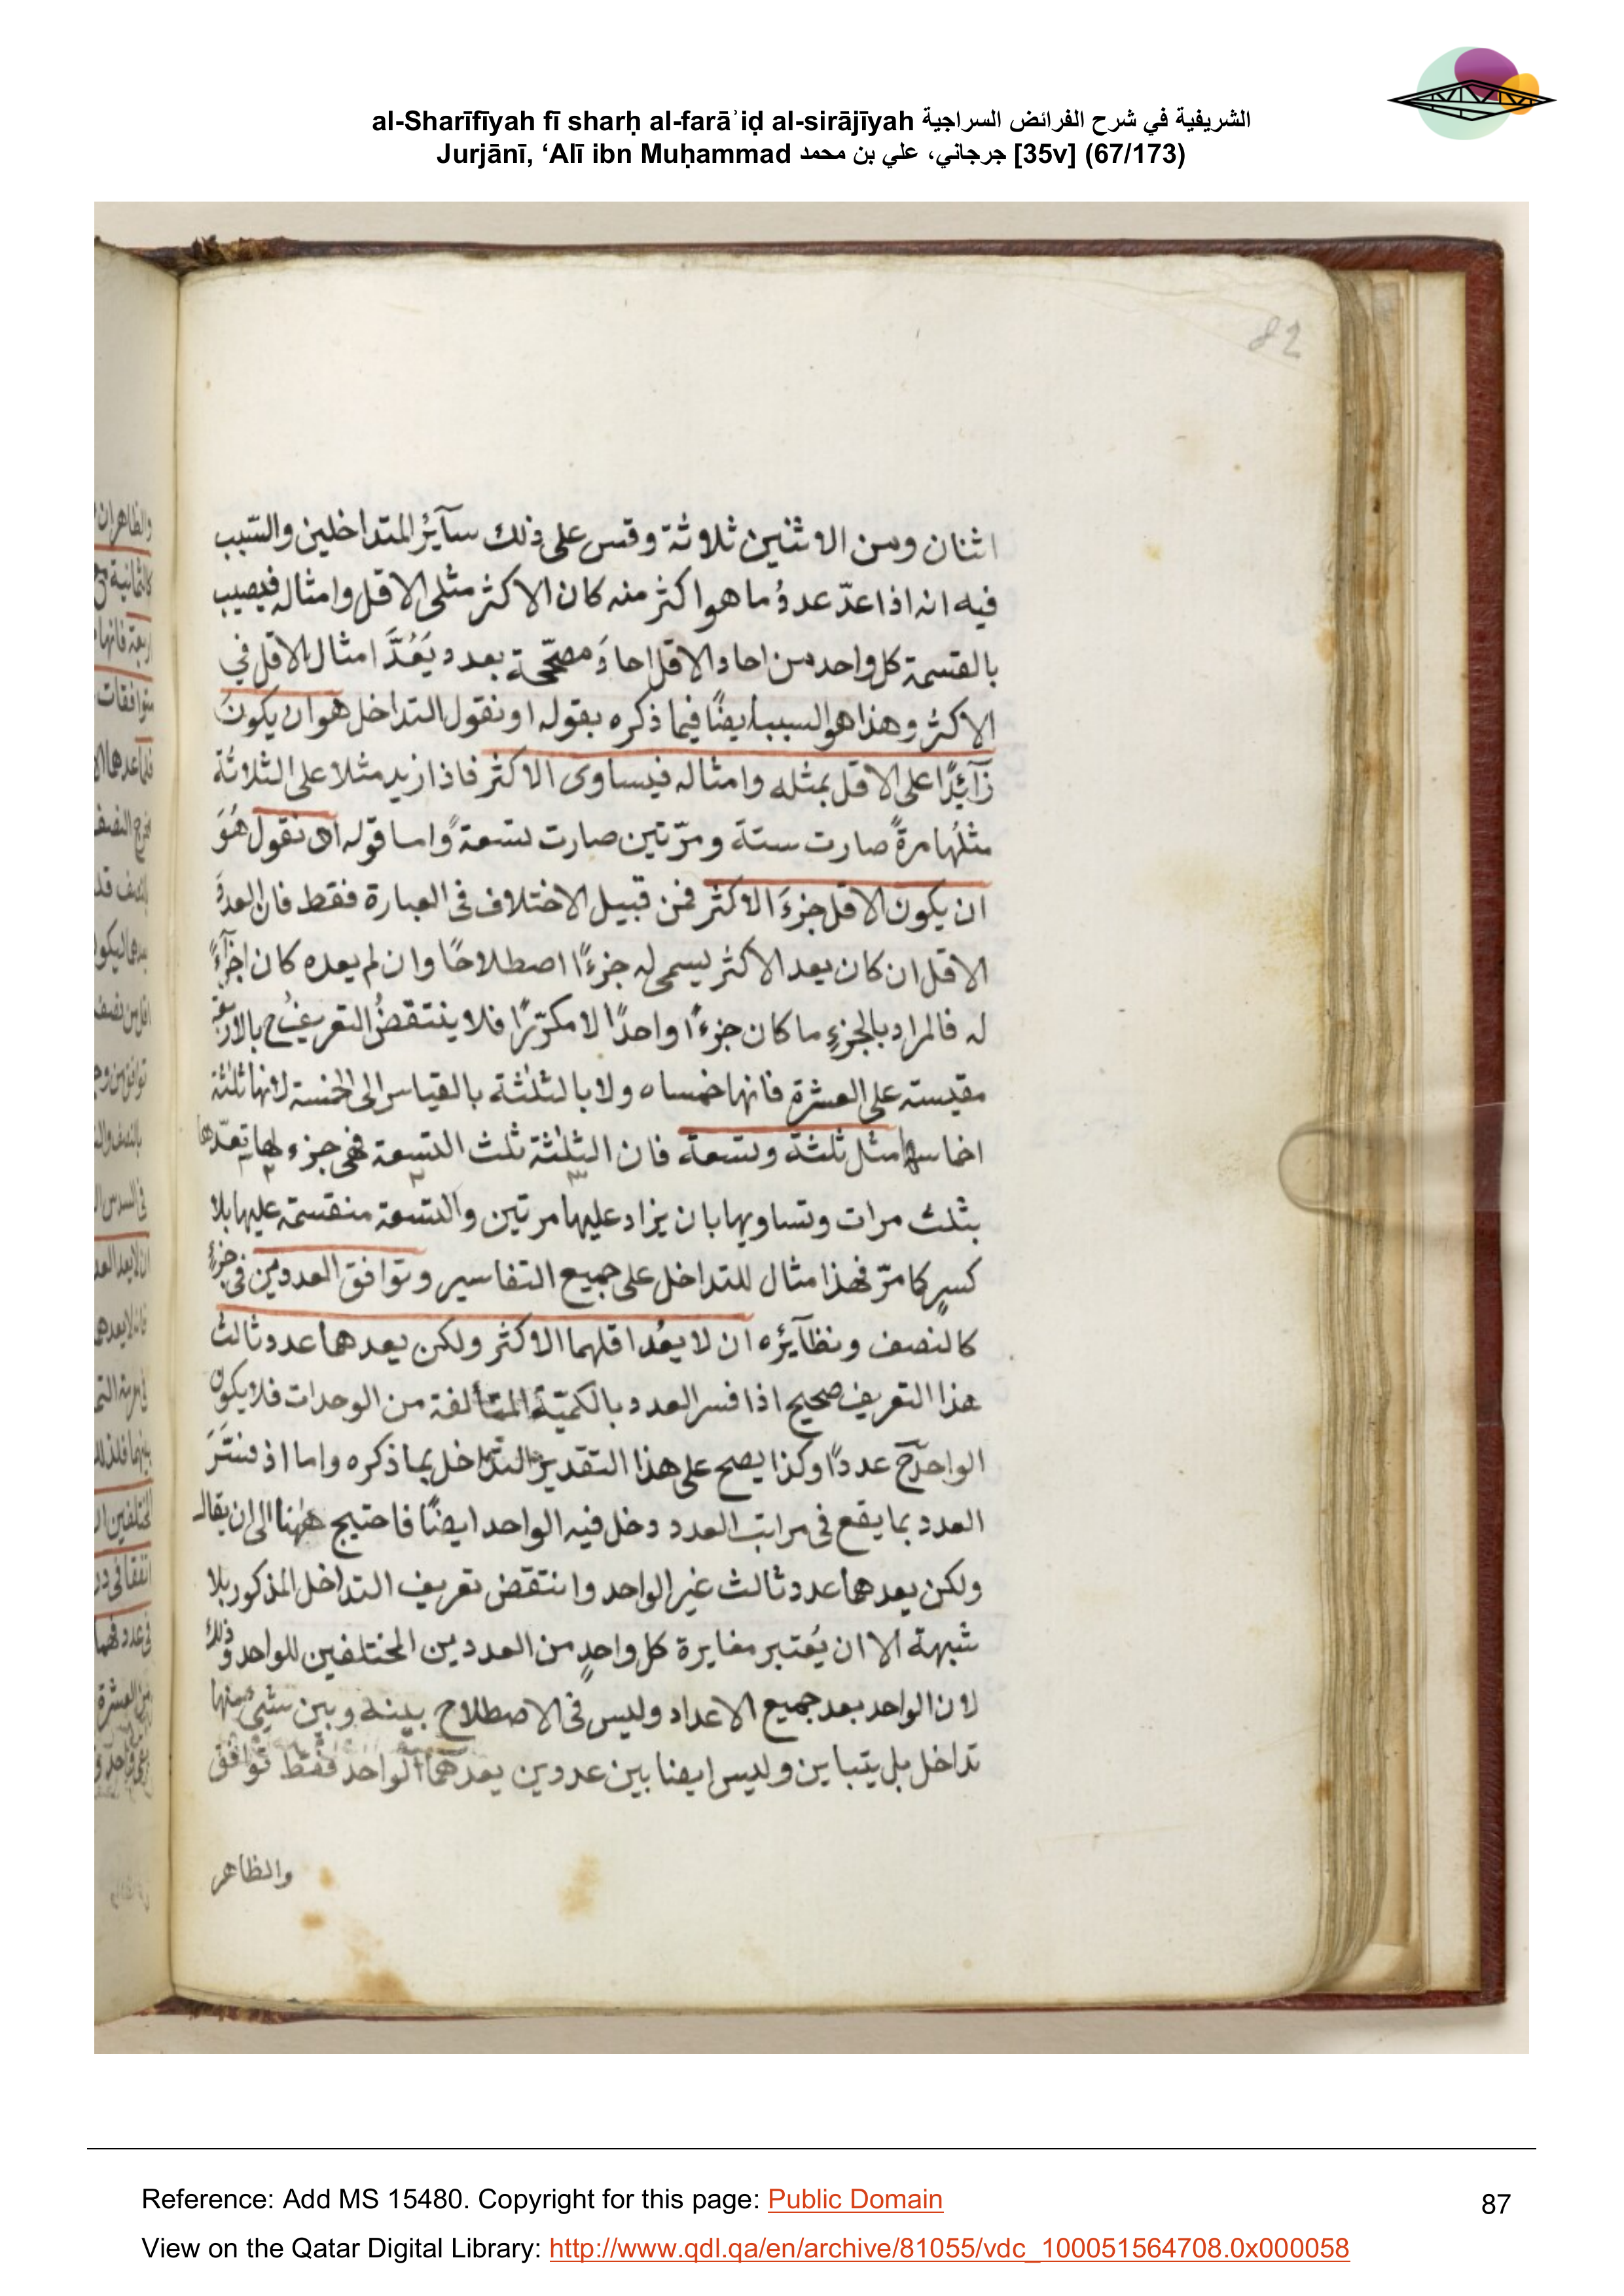 al-Sharīfīyah fī sharḥ al-farāʾiḍ al-sirājīyah الشريفية في شرح الفرائض السراجية
Jurjānī, ‘Alī ibn Muḥammad جرجاني، علي بن محمد [35v] (67/173)
82
اثنان ومن الاثنين ثلاثة وقس على ذلك سآئر المتداخلين والسّبب
فيه انه اذا عدّ عددُ ما هو اكثر منه كان الاكثر مثلى الاقل وامثاله فيصيب
بالقسمة كل واحد من احاد الاقل احادَ مصحّحة بعدد يَعُدَّ امثال الاقل في
الاكثر وهذا هو السبب ايضًا فيما ذكره بقوله او نقول التداخل هو ان يكونَ
زآئِدًا على الاقل بمثله وامثاله فيساوى الاكثر فاذا زيد مثلا على الثلاثة
مثلُها مرةً صارت ستة ومرّتين صارت تسعةً واما قوله او نقول هُوَ
ان يكون الاقل جزءَ الاكثر فمن قبيل الاختلاف فى العبارة فقط فان العددَ
الاقل ان كان يعد الاكثر يسمى له جزءًا اصطلاحًا وان لم يعده كان اجزآءً
له فالمراد بالجزءِ ما كان جزءًا واحدًا لا مكرّرًا فلا ينتقضُ التعريفُ ح بالاربعة
مقيسته على العشرة فانها خمساه ولا بالثلثة بالقياس الى الخمسة لانها ثلثة
اخماسها مثل ثلثة وتسعة فان الثلثة ثلث التسعة فهى جزء لها تعدّها
بثلث مرات وتساويها بان يزاد عليها مرتين والتسعة منقسمة عليها بلا
كسرٍ كما مرّ فهذا مثال للتداخل على جميع التفاسير وتوافق العددين فى جزءٍ
كالنصف ونظآئره ان لا يعُد اقلهما الاكثر ولكن يعدهما عدد ثالث
هذا التعريف صحيح اذا فسر العدد بالكميّة المتألفة من الوحدات فلا يكون
الواحد ح عددًا وكذا يصح على هذا التقدير التداخل بما ذكره واما اذ فسّرَ
العدد بما يقع فى مراتب العدد دخل فيه الواحد ايضًا فاحتيج ههنا الى ان يقال
ولكن يعدهما عدد ثالث غير الواحد وانتقض تعريف التداخل المذكور بلا
شبهة الا ان يُعتبر مغايرة كل واحدٍ من العددين المختلفين للواحد وذلك
لان الواحد يعد جميع الاعداد وليس فى الاصطلاح بينه وبين شىء منها
تداخل بل يتباين وليس ايضا بين عددين يعدهما الواحد فقط توافق
والظاهر
Reference: Add MS 15480. Copyright for this page: Public Domain
87
View on the Qatar Digital Library: http://www.qdl.qa/en/archive/81055/vdc_100051564708.0x000058